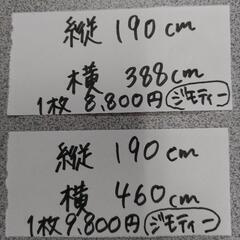 縦 190cm
横 388cm
1枚 8,800円 ジモティー
縦 190cm
横 460cm
1枚 9,800円 ジモティー